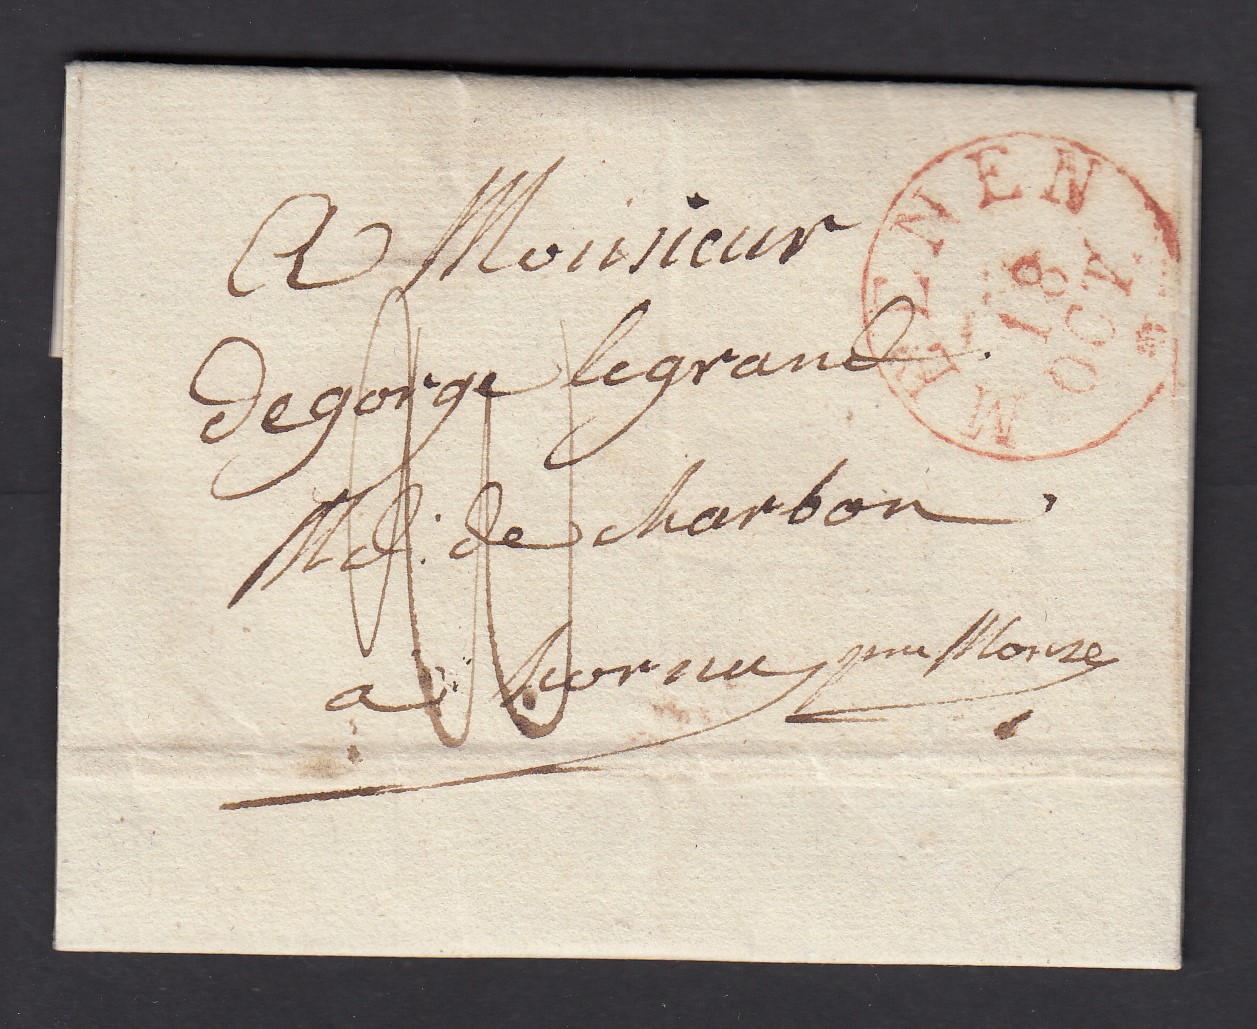 A Monsieur
degorge legrand
Md: de charbon
a hornu pres Monse
MEENEN
18
OCT